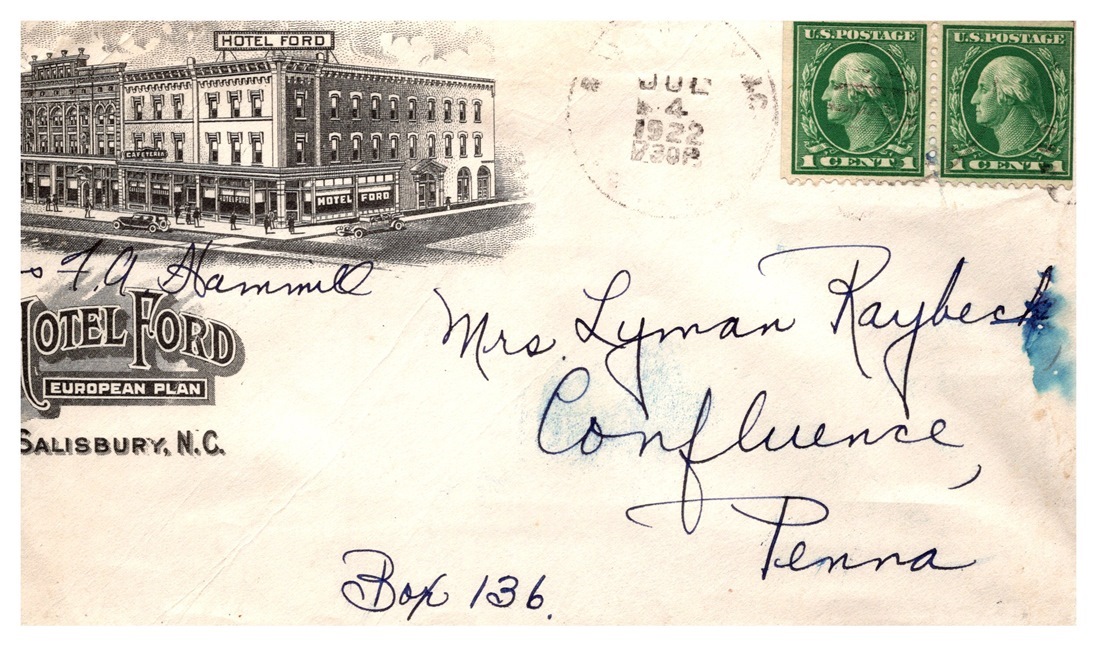 HOTEL FORD
CAFETERIA
HOTEL FORD
HOTEL FORD
JUL
4
1922
730P
U.S. POSTAGE
1 CENT 1
U.S. POSTAGE
1 CENT 1
F. A. Hammill
HOTEL FORD
EUROPEAN PLAN
SALISBURY, N.C.
Mrs. Lyman Raybeck
Confluence,
Penna
Box 136.